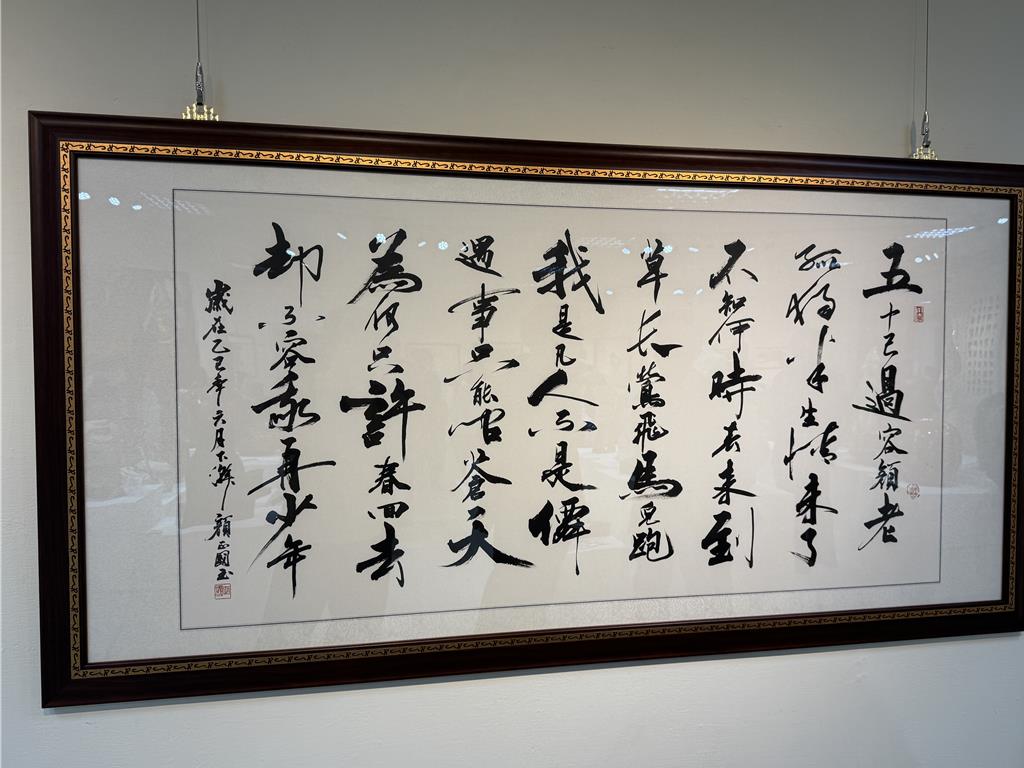 五十已過容顏老
孤獨半生情未了
不知何時春来到
草长鶯飛馬兒跑
我是凡人不是僊
遇事只能問蒼天
為何只許春回去
却不容我再少年
歲在乙巳年六月下澣 顏正國